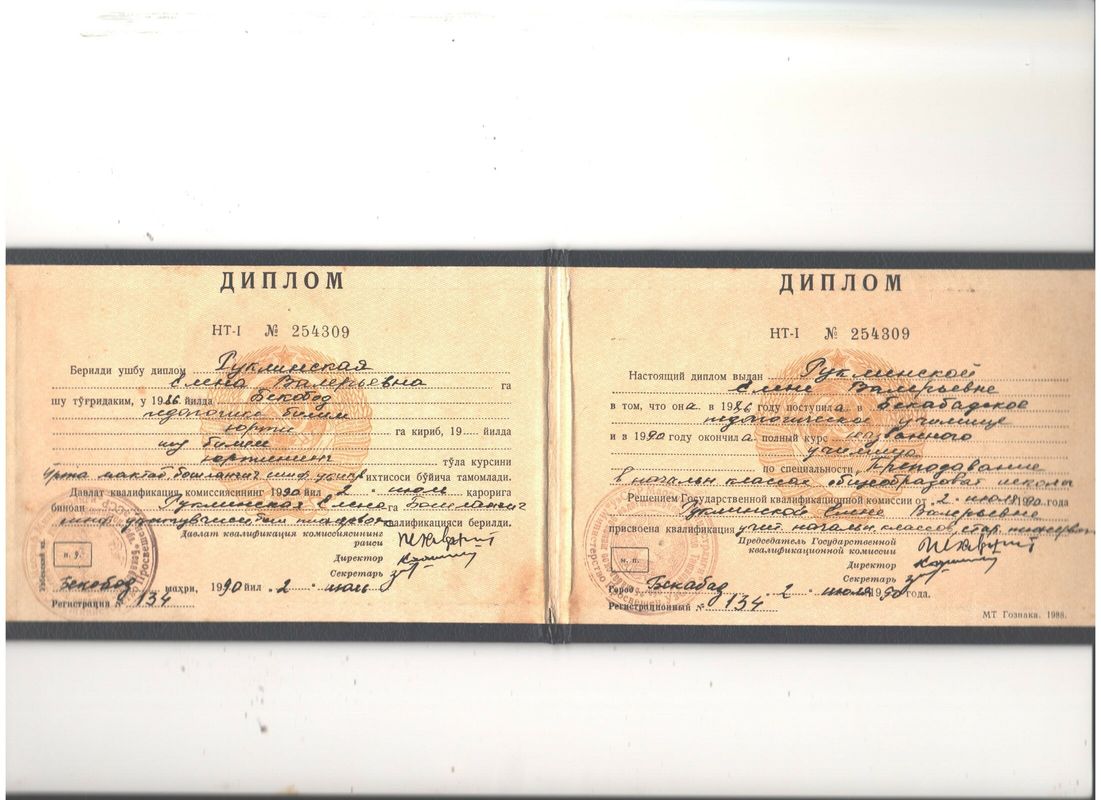 ДИПЛОМ
НТ-I № 254309
Берилди ушбу диплом Руклинская
Елена Валерьевна га
шу тўғридаким, у 1986 йилда Бекобод
педогогика билим
юрти га кириб, 19 йилда
шу билим
юртининг тўла курсини
ўрта мактаб бошланғич синф ўқитув ихтисоси бўйича тамомлади.
Давлат квалификация комиссиясининг 1990 йил 2 июль қарорига
биноан Руклинская Елена га Бошланғич
синф ўқитувчиси квалификацияси берилди.
Давлат квалификация комиссиясининг
раиси
Директор
Секретарь
м. ў.
Бекобод шаҳри, 1990 йил 2 июль
Регистрация № 134
ДИПЛОМ
НТ-I № 254309
Настоящий диплом выдан Руклинской
Елене Валерьевне
в том, что она в 1986 году поступила в Бекабадское
педагогическое училище
и в 1990 году окончила полный курс названного
училища
по специальности Преподавание
в начальн классах общеобразоват школы
Решением Государственной квалификационной комиссии от 2 июля 1990 года
Руклинской Елене Валерьевне
присвоена квалификация учит. начальн. классов, стар. пионервож
Председатель Государственной
квалификационной комиссии
Директор
Секретарь
м. п.
Город Бекабад 2 июля 1990 года.
Регистрационный № 134
МТ Гознака. 1988.